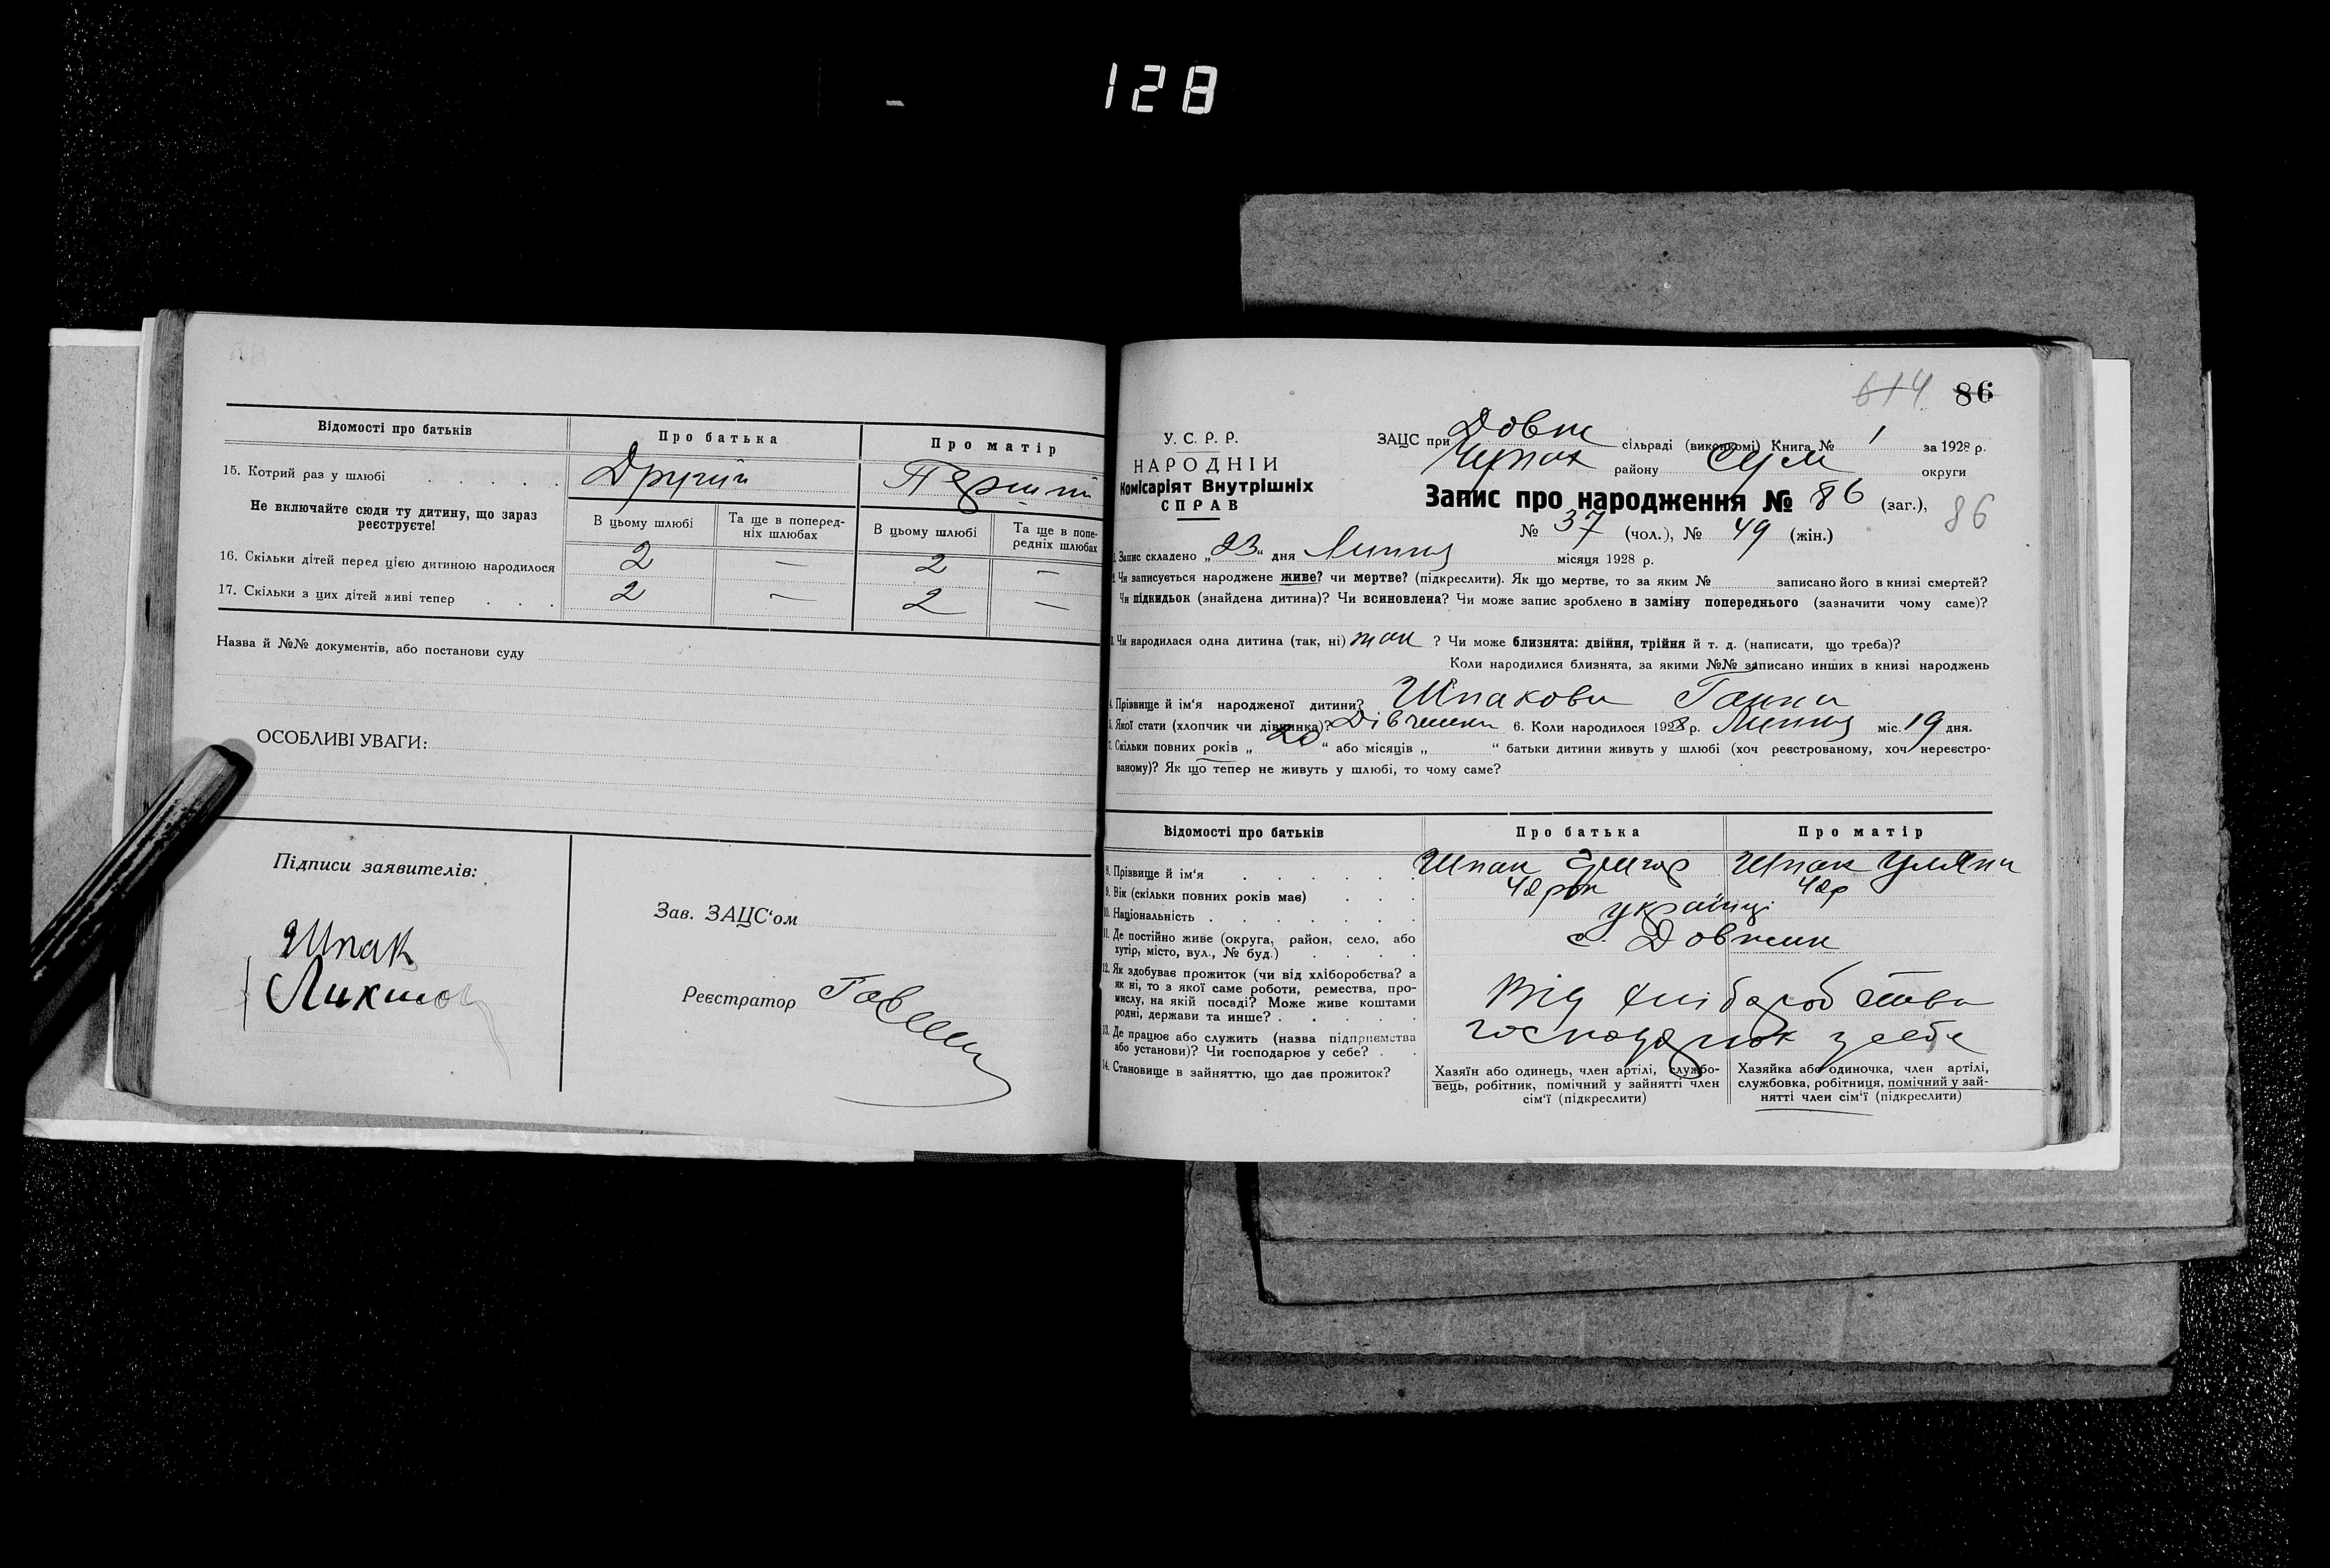 128
Відомості про батьків Про батька Про матір
15. Котрий раз у шлюбі Другий Перший
Не включайте сюди ту дитину, що зараз реєструєте!
В цьому шлюбі Та ще в поперед-ніх шлюбах В цьому шлюбі Та ще в попе-редніх шлюбах
16. Скільки дітей перед цією дитиною народилося 2 — 2 —
17. Скільки з цих дітей живі тепер 2 — 2 —
Назва й №№ документів, або постанови суду
ОСОБЛИВІ УВАГИ:
Підписи заявителів:
Шпак
Зав. ЗАЦС‘ом
Реєстратор
614 86
У. С. Р. Р.
НАРОДНІЙ
Комісаріят Внутрішніх
СПРАВ
ЗАЦС при Довж сільраді (виконкомі) Книга № 1 за 1928 р.
Чупах району Сум округи
Запис про народження № 86 (заг.),
86
№ 37 (чол.), № 49 (жін.)
1. Запис складено „23“ дня Липня місяця 1928 р.
2. Чи записується народжене живе? чи мертве? (підкреслити). Як що мертве, то за яким № записано його в книзі смертей?
Чи підкидьок (знайдена дитина)? Чи всиновлена? Чи може запис зроблено в заміну попереднього (зазначити чому саме)?
3. Чи народилася одна дитина (так, ні) так ? Чи може близнята: двійня, трійня й т. д. (написати, що треба)?
Коли народилися близнята, за якими №№ записано инших в книзі народжень
4. Прізвище й ім‘я народженої дитини? Шпакова Ганна
5. Якої стати (хлопчик чи дівчинка)? Дівчинка 6. Коли народилося 1928 р. Липня міс. 19 дня.
7. Скільки повних років „20“ або місяців „ “ батьки дитини живуть у шлюбі (хоч реєстрованому, хоч нереєстро-
ваному)? Як що тепер не живуть у шлюбі, то чому саме?
Відомості про батьків Про батька Про матір
8. Прізвище й ім‘я Шпак Григор Шпак Уляна
9. Вік (скільки повних років має) 42 рок 42 р
10. Національність українці
11. Де постійно живе (округа, район, село, або хутір, місто, вул., № буд.) с. Довжик
12. Як здобуває прожиток (чи від хліборобства? а як ні, то з якої саме роботи, ремества, про-мислу, на якій посаді? Може живе коштами родні, держави та инше? Від хліборобства
13. Де працює або служить (назва підприємства або установи)? Чи господарює у себе? у себе
14. Становище в зайняттю, що дає прожиток?
Хазяїн або одинець, член артілі, службо-
вець, робітник, помічний у зайнятті член
сім‘ї (підкреслити)
Хазяйка або одиночка, член артілі,
службовка, робітниця, помічний у зай-
нятті член сім‘ї (підкреслити)